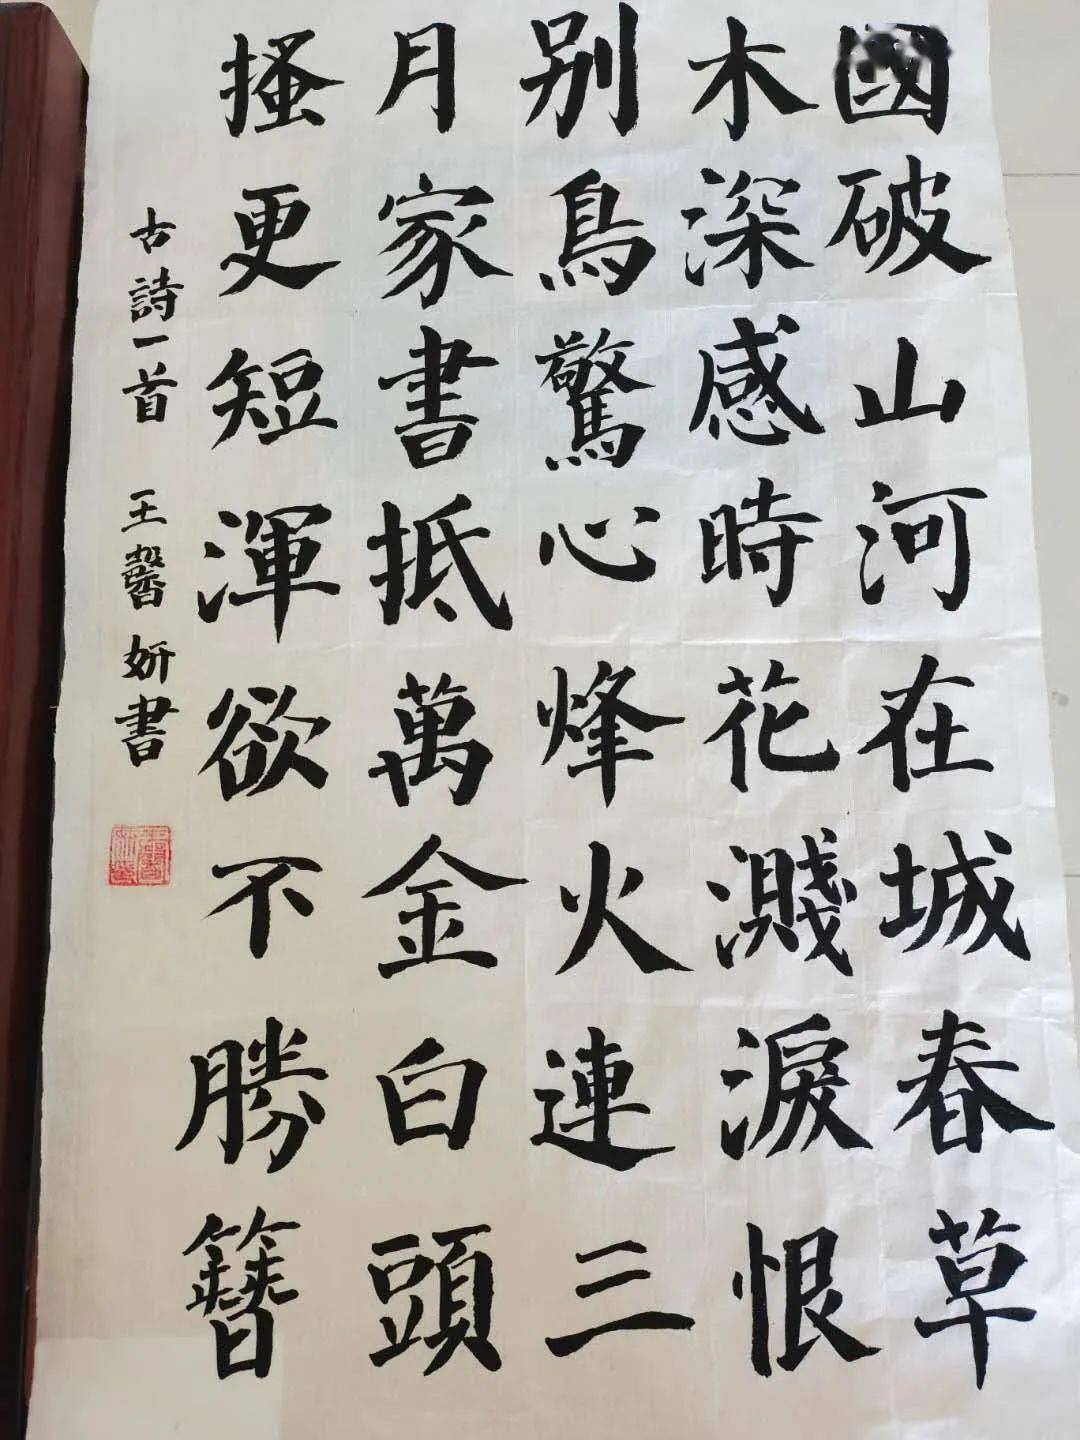 國破山河在城春草
木深感時花濺淚恨
别鳥驚心烽火連三
月家書抵萬金白頭
搔更短渾欲不勝簪
古詩一首 王馨妍書